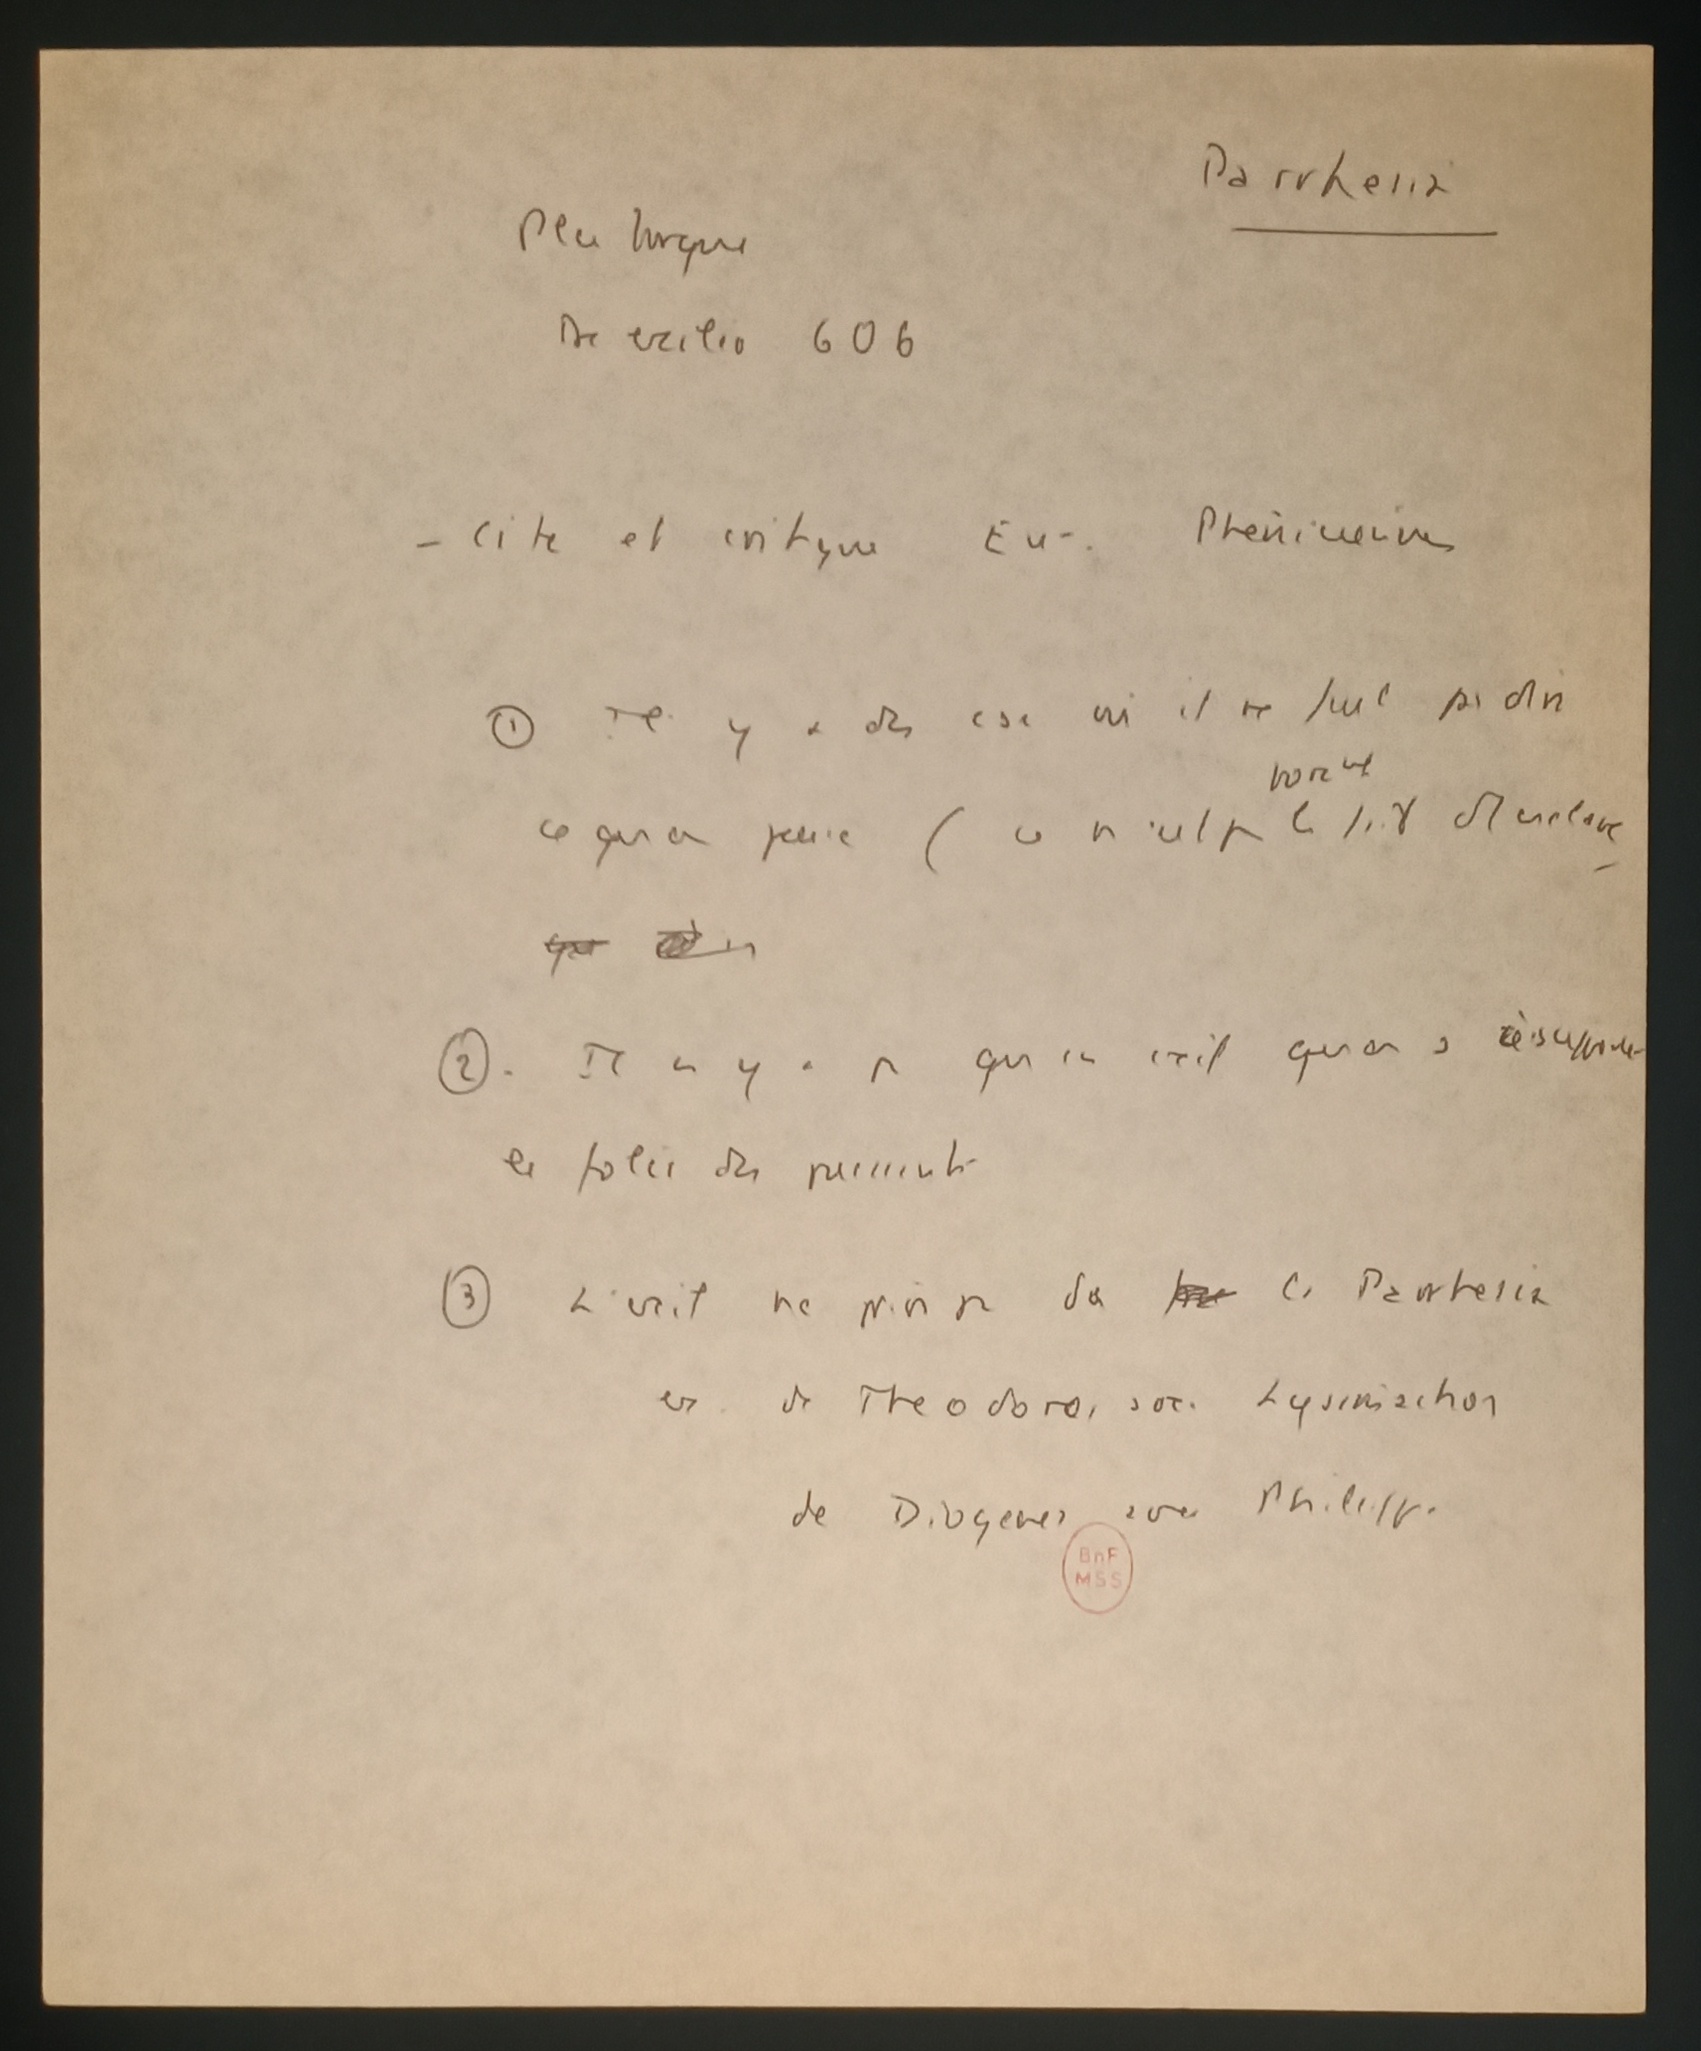 Parrhesia
Plutarque
De exilio 606
- Cite et critique Eur. Phéniciennes
① Il y a des cas où il ne faut pas dire
ce qu'on pense ( ce n'est pas le d'esclave
② . Il n'y a pas qu'en exil qu'on a à supporter
les folies des puissants
③ L'exil ne prive pas de la Parrhesia
ex. de Theodoros avec Lysimachos
de Diogenes avec Philippe
BnF
MSS